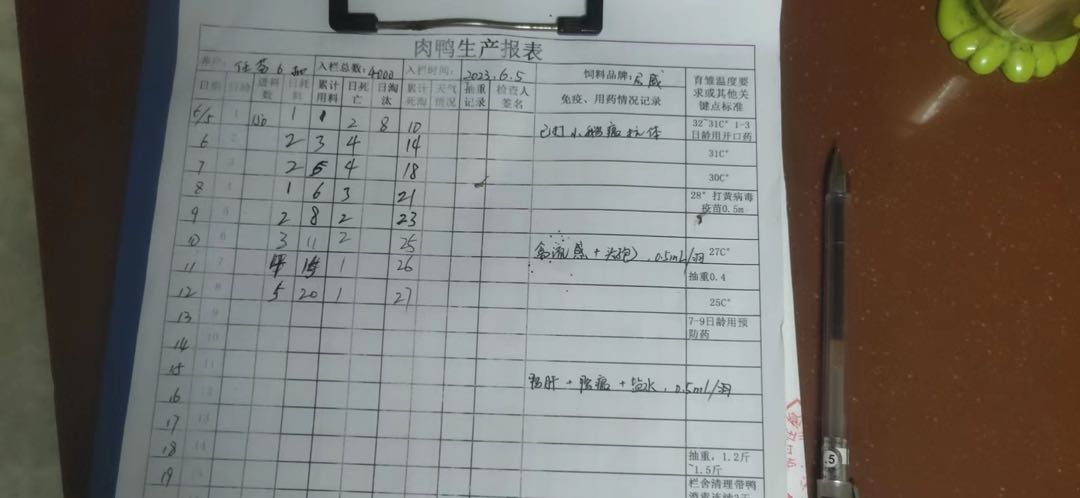 肉鸭生产报表
养户: 入栏总数:4000 入栏时间: 2023.6.5 饲料品牌: 育雏温度要求或其他关键点标准
日期 日龄 进料数 日耗料 累计用料 日死亡 日淘汰 累计死淘 天气情况 抽重记录 检查人签名 免疫、用药情况记录
6/5 1 1 1 2 8 10 32~31C° 1-3日龄用开口药
6 2 2 3 4 14 31C°
7 3 2 5 4 18 30C°
8 4 1 6 3 21 28° 打黄病毒疫苗0.5m
9 5 2 8 2 23
10 6 3 11 2 25 禽流感+ 0.5ml/羽 27C°
11 7 4 15 1 26 抽重0.4
12 8 5 20 1 27 25C°
13 9 7-9日龄用预防药
14 10
15 11
16 12 鸭肝+鸭瘟+盐水,0.5ml/羽
17 13
18 14 抽重,1.2斤~1.5斤
19 栏舍清理带鸭
.5